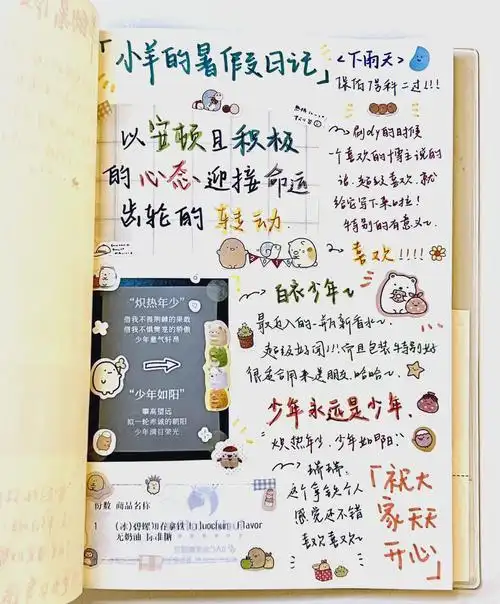 「小羊的暑假日记」
<下雨天>
保佑偶科二过!!!
以安顿且积极
的心态迎接命运
齿轮的转动.
~刷dy的时候
一个喜欢的博主说的
话.超级喜欢.就
给它写下来啦!
特别的有意义~
~喜欢!!!!
~白衣少年~
最近入的一瓶新香水~
超级好闻!!!而且包装特别好
很适合用来送朋友.哈哈~
“炽热年少”
借我不畏荆棘的果敢
借我不惧樊笼的骄傲
少年意气轩昂
“少年如阳”
攀高望远
拟一轮赤诚的朝阳
少年满目荣光
少年永远是少年.
“炽热年少,少年如阳”
~瑞瑞.
这个拿铁个人
感觉还不错
喜欢喜欢~
「祝大
家天天
开心」
份数 商品名称
1 (冰)碧螺知春拿铁 Biluochun Flavor
无奶油 标准糖